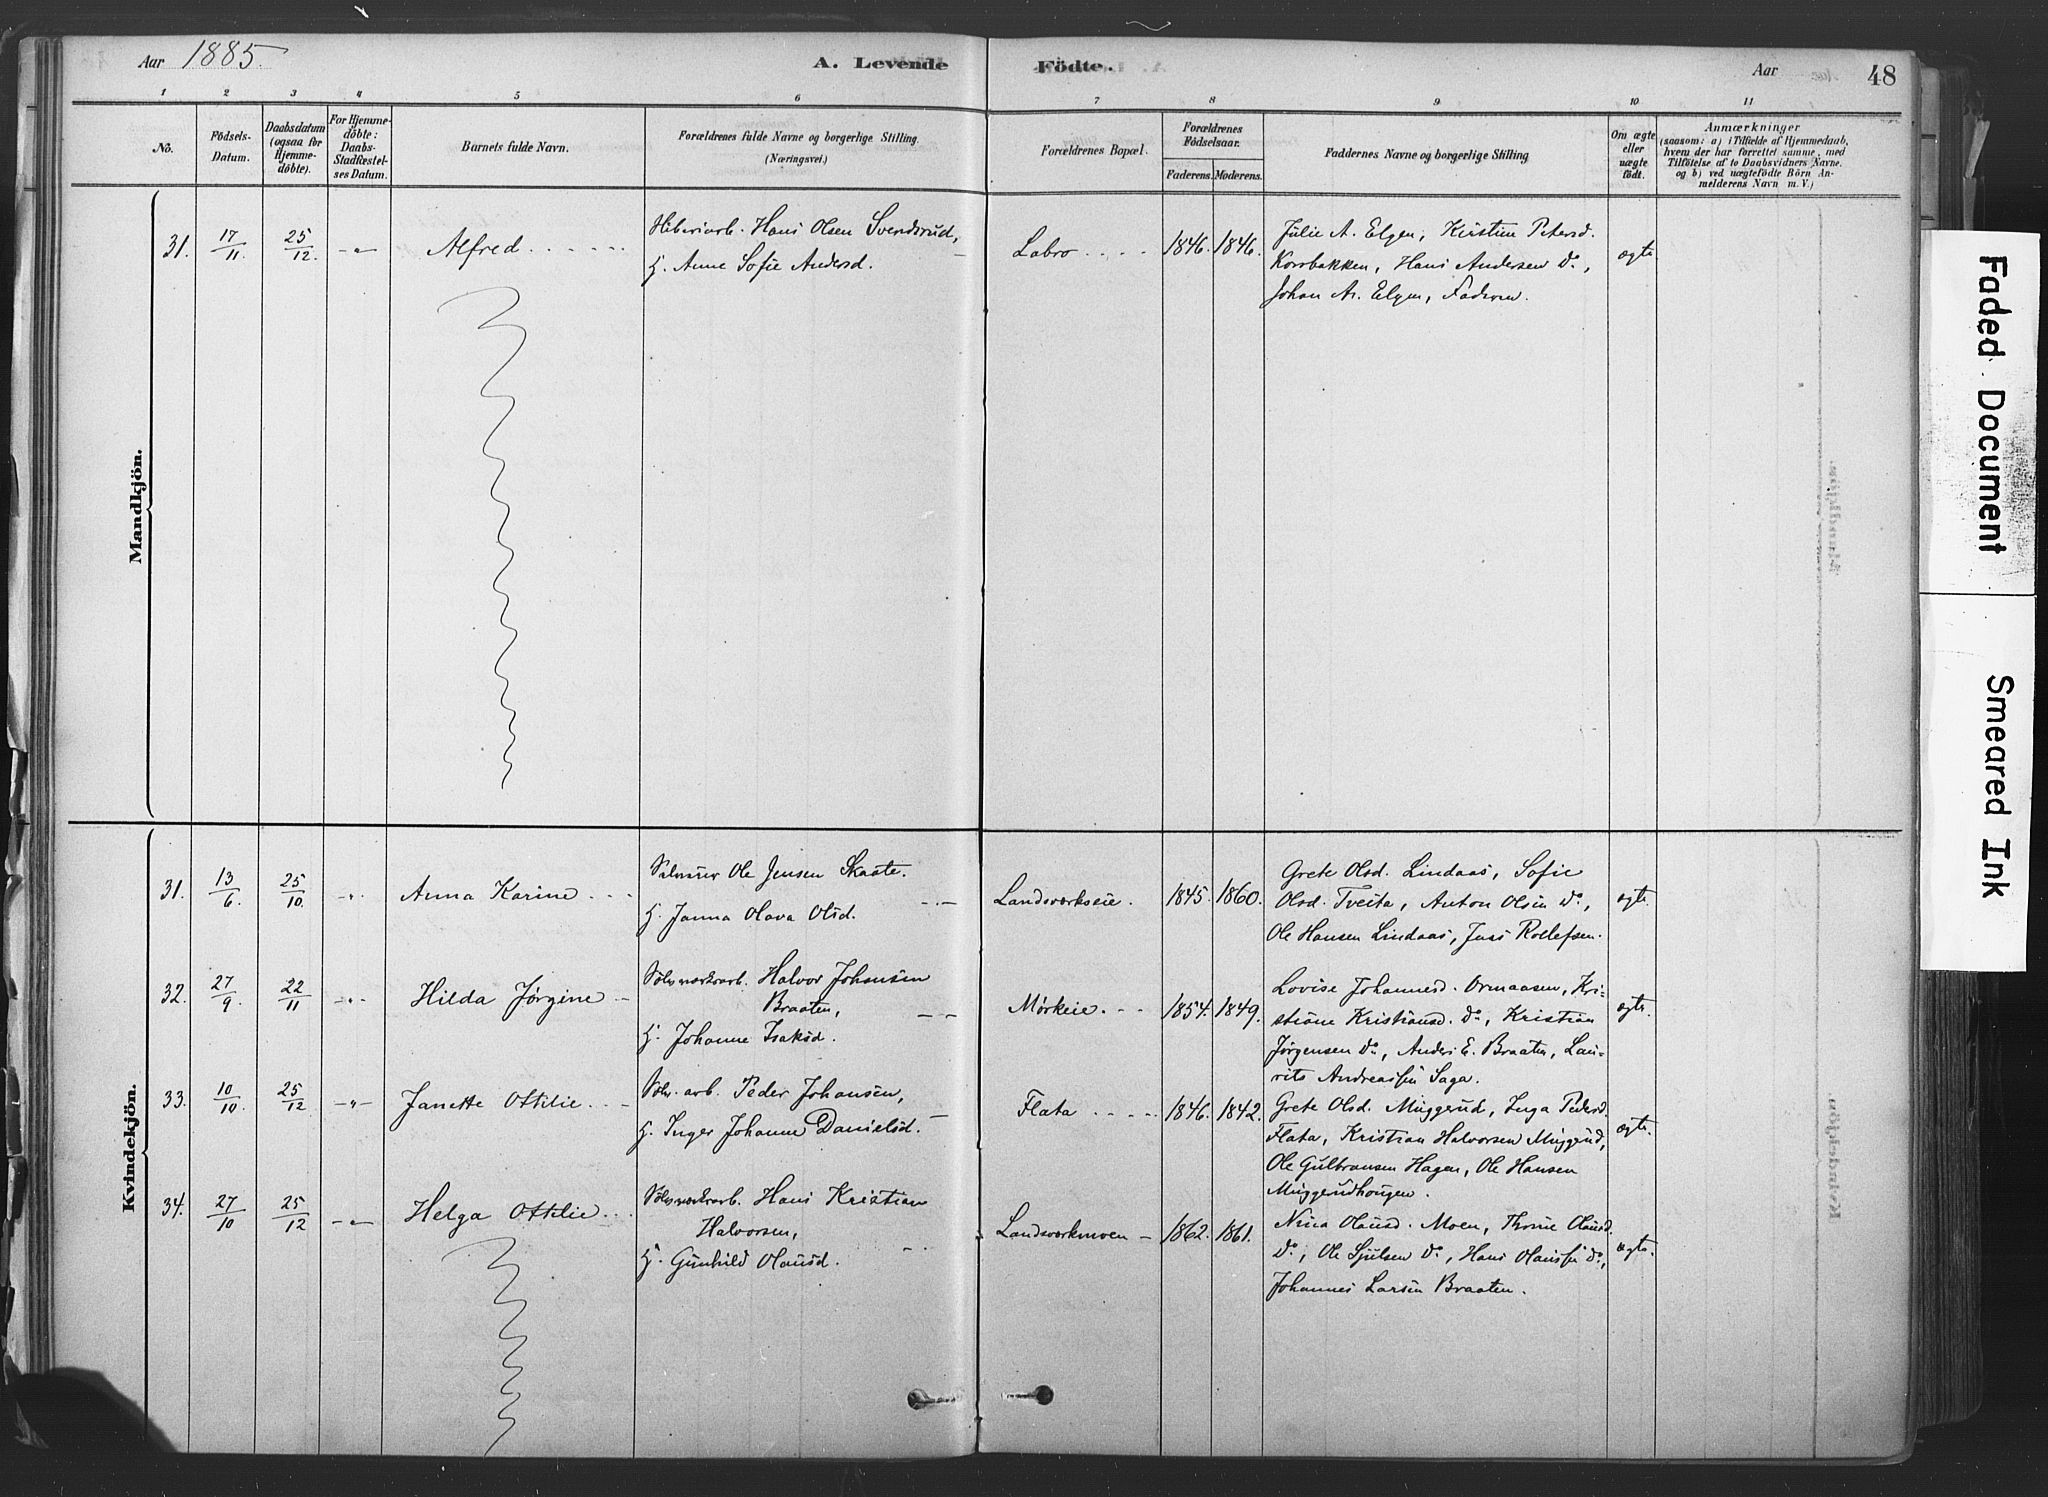 Aar 1885.
A. Levende
Födte.
Aar
48
1 2 3 4 5 6 7 8 9 10 11
No.
Födsels-
Datum.
Daabsdatum
(ogsaa for
Hjemme-
döbte).
For Hjemme-
döbte:
Daabs-
Stadfæstel-
ses Datum.
Barnets fulde Navn.
Forældrenes fulde Navne og borgerlige Stilling.
(Næringsvei.)
Forældrenes Bopæl.
Forældrenes
Födselsaar.
Faderens. Moderens.
Faddernes Navne og borgerlige Stilling
Om ægte
eller
uægte
födt.
Anmærkninger
(saasom: a) i Tilfælde af Hjemmedaab,
hvem der har forrettet samme, med
Tilföielse af to Daabsvidners Navne.
og b) ved uægtefödte Börn An-
melderens Navn m. V.)
Mandkjön.
31. 17/11 25/12. -"- Alfred
Hans Olsen Svendsrud,
H. Anne Sofie Andersd.
Labro 1846. 1846.
Julie A. Elgen, Kristine Petersd.
Korsbakken, Hans Andersen Do,
Johan A. Elgen, Faderen.
ægte
Kvindekjön.
31. 13/6 25/10. -"- Anna Karine
Ole Jensen Skaate.
H. Janna Olava Olsd.
Landsværkseie. 1845. 1860.
Grete Olsd. Lindaas, Sofie
Olsd. Tveita, Anton Olsen Do,
Ole Hansen Lindaas, Jens Rollefsen.
ægte.
32. 27/9 22/11 -"- Hilda Jørgine
Sølvværksarb. Halvor Johansen
Braaten,
H. Johanne Isaksd.
Mørkeie. 1854. 1849.
Lovise Johannesd. Ormaasen, Kri-
stiane Kristiansd. Do, Kristian
Jørgensen Do, Anders E. Braaten, Lau-
rits Andreassen Saga.
ægte.
33. 10/10. 25/12 -"- Janette Ottilie
Sølv. arb. Peder Johansen,
H. Inger Johanne Danielsd.
Flata 1846. 1842.
Grete Olsd. Muggerud, Inga Pedersd.
Flata, Kristian Halvorsen Muggerud,
Ole Gulbransen Hagen, Ole Hansen
Muggerudhougen.
ægte.
34. 27/10 25/12 -"- Helga Ottilie
Sølvværksarb. Hans Kristian
Halvorsen,
H. Gunhild Olausd.
Landsværkmoen 1862. 1861.
Nina Olausd. Moen, Thrine Olausd.
Do, Ole Sjulsen Do, Hans Olaussen Do,
Johannes Larsen Braaten.
ægte.
Faded Document
Smeared Ink